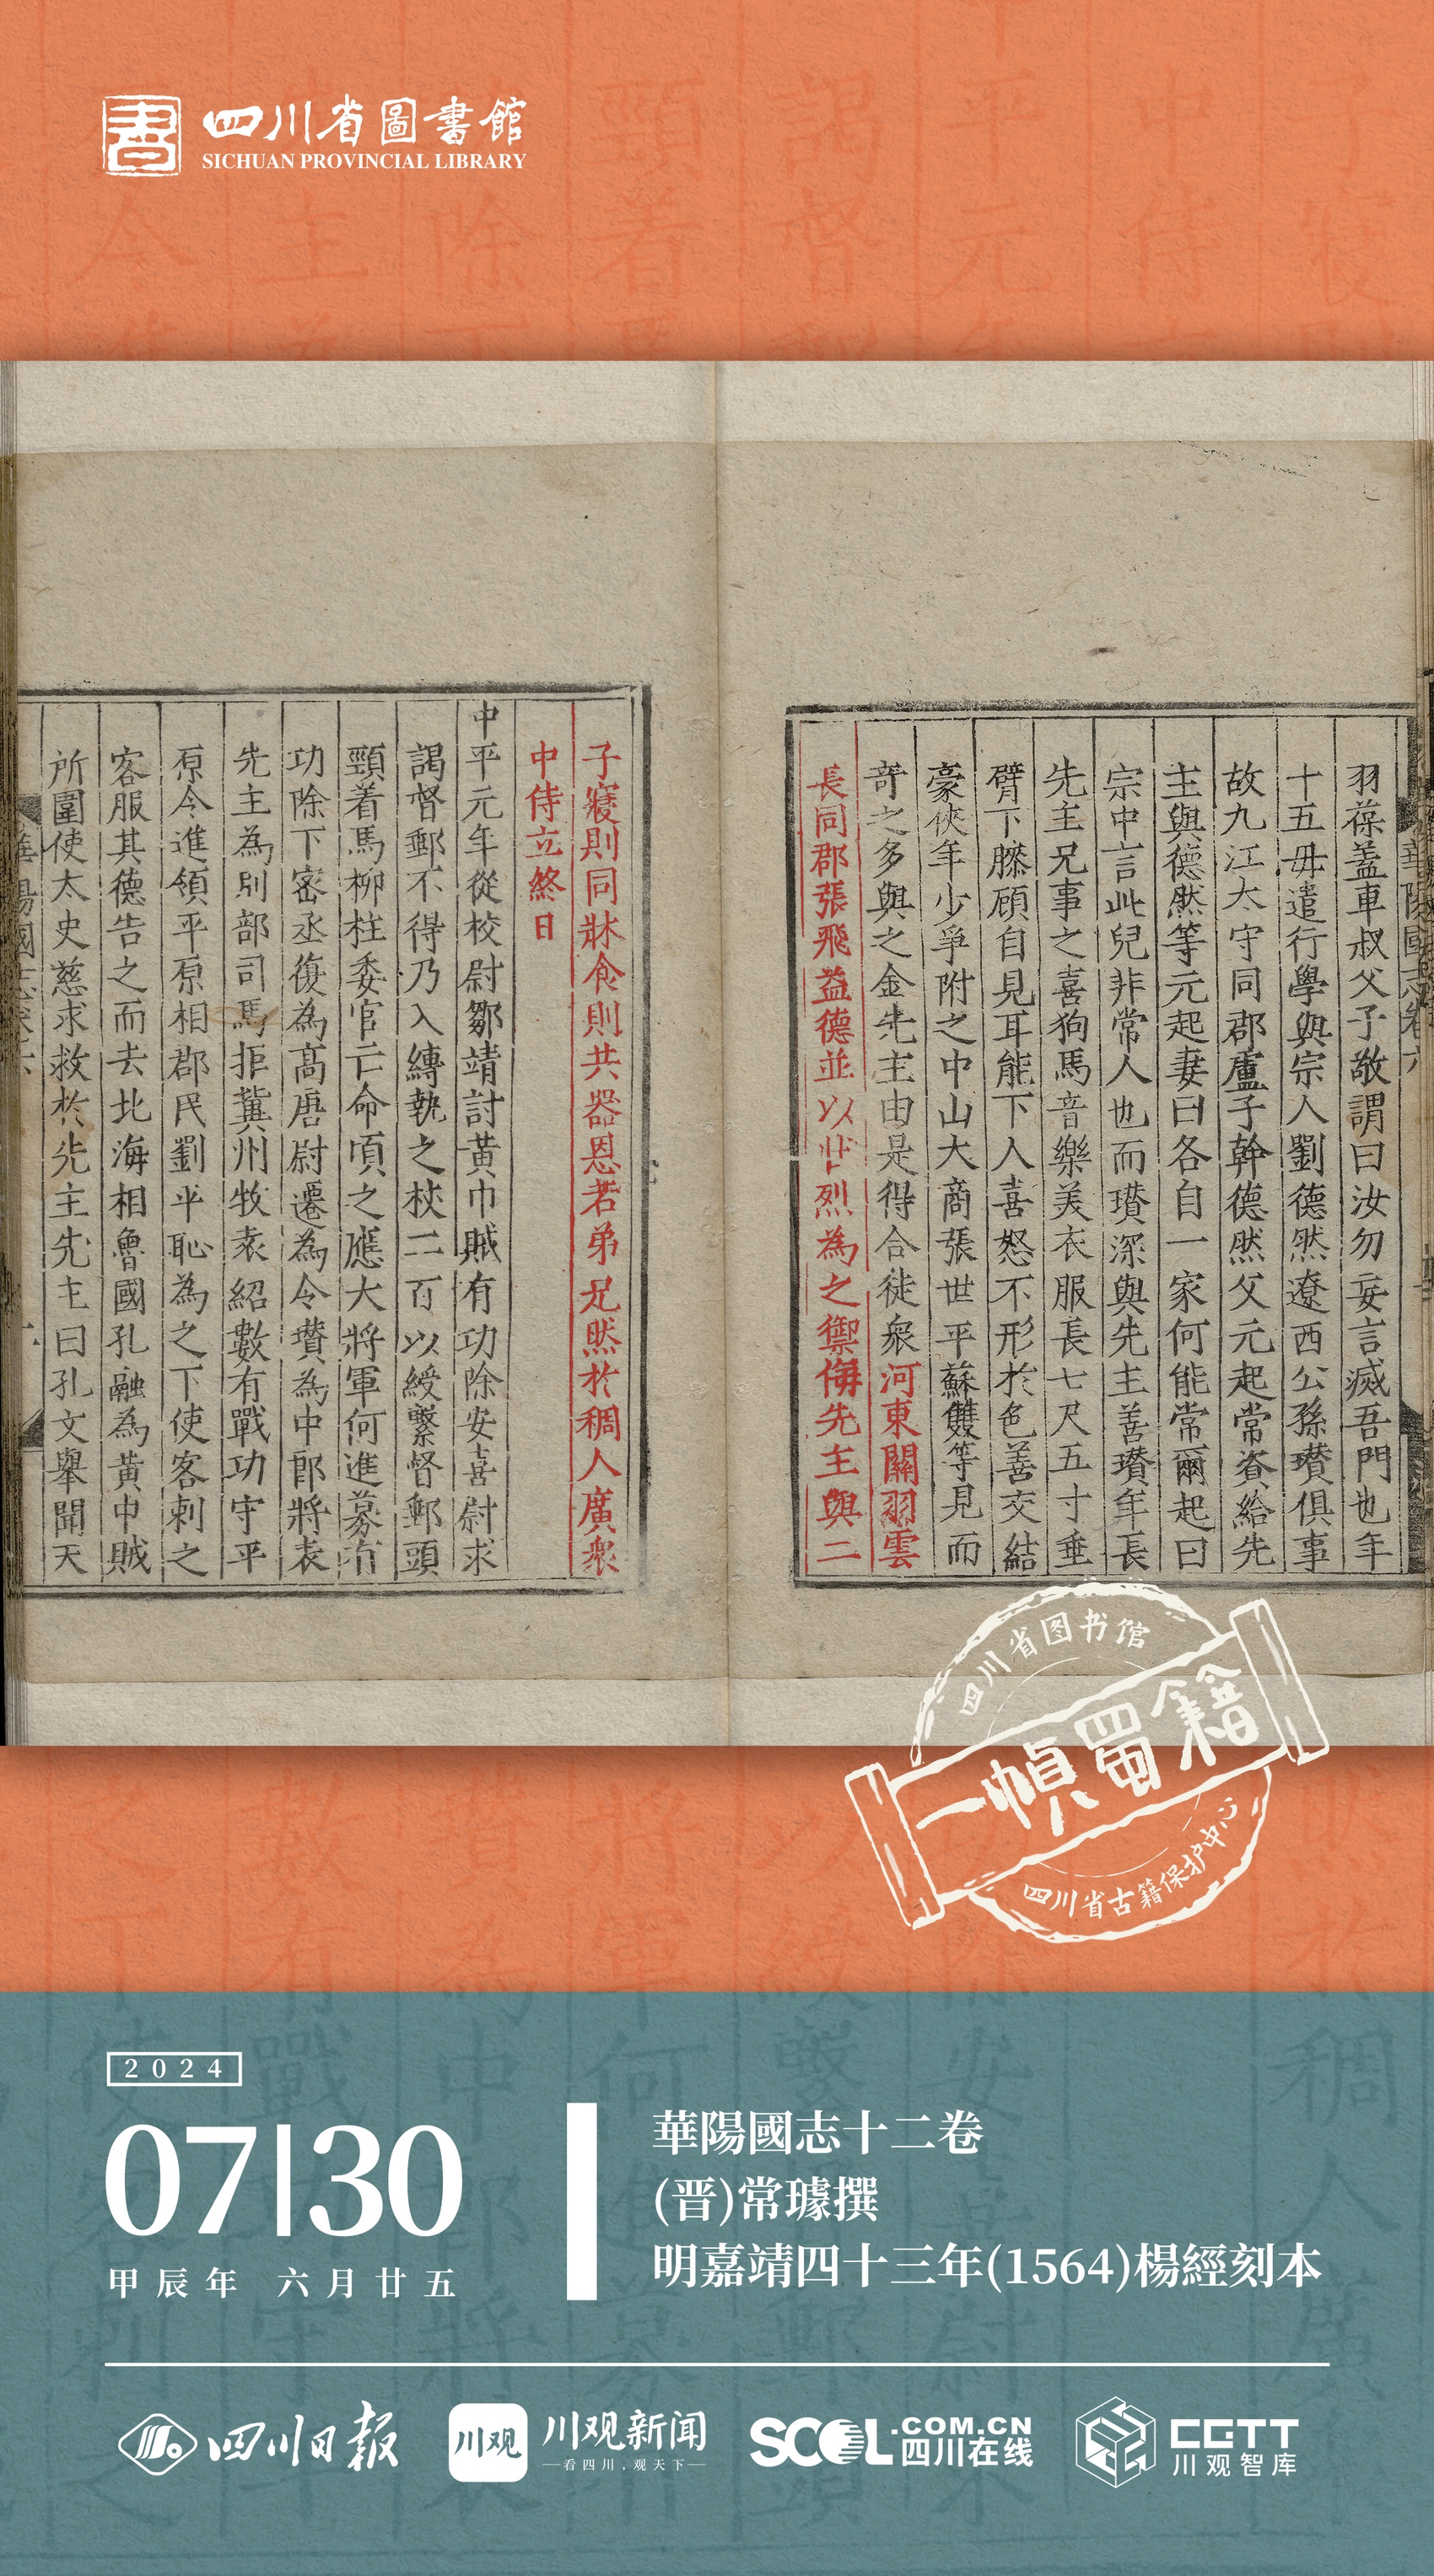 四川省圖書館
SICHUAN PROVINCIAL LIBRARY
華陽國志卷六
羽葆蓋車叔父子敬謂曰汝勿妄言滅吾門也年
十五毋遣行學與宗人劉德然遼西公孫瓚俱事
故九江太守同郡盧子幹德然父元起常資給先
主與德然等元起妻曰各自一家何能常爾起曰
宗中言此兒非常人也而瓚深與先主善瓚年長
先主兄事之喜狗馬音樂美衣服長七尺五寸垂
臂下膝顧自見耳能下人喜怒不形於色善交結
豪俠年少爭附之中山大商張世平蘇雙等見而
奇之多與之金先主由是得合徒衆河東關羽雲
長同郡張飛益德並以壯烈為之禦侮先主與二
子寢則同牀食則共器恩若弟兄然於稠人廣衆
中侍立終日
中平元年從校尉鄒靖討黃巾賊有功除安喜尉求
謁督郵不得乃入縛執之杖二百以綬繫督郵頭
頸着馬柳柱委官亡命頃之應大將軍何進募有
功除下密丞復為高唐尉遷為令瓚為中郎將表
先主為別部司馬拒冀州牧袁紹數有戰功守平
原令進領平原相郡民劉平恥為之下使客刺之
客服其德告之而去北海相魯國孔融為黃巾賊
所圍使太史慈求救於先主先主曰孔文舉聞天
四川省图书馆
一幀蜀籍
四川省古籍保护中心
2024
07|30
甲辰年 六月廿五
華陽國志十二卷
(晋)常璩撰
明嘉靖四十三年(1564)楊經刻本
四川日报
川观
川观新闻
看四川，观天下
SCOL.COM.CN
四川在线
CGTT
川观智库